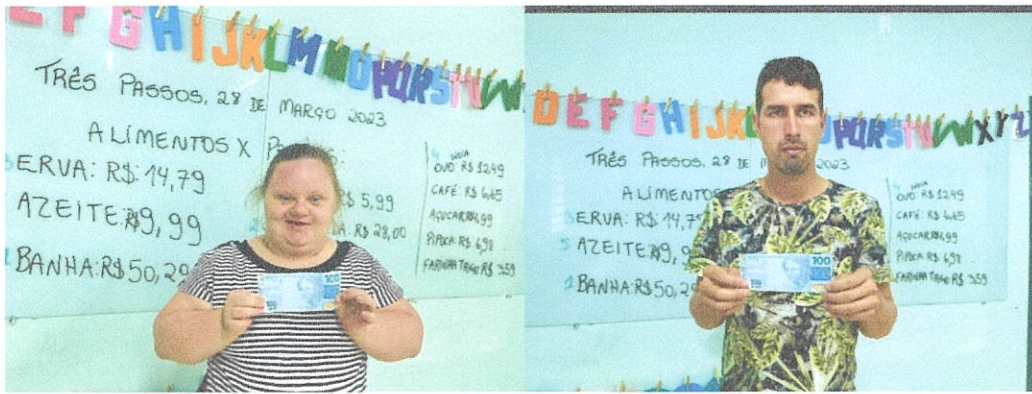 E F G H I J K L M N O P Q R S T U V W
TRÊS PASSOS, 28 DE MARÇO 2023
ALIMENTOS X
3 ERVA: R$: 14,79
AZEITE: R$9,99
1 BANHA: R$50,29
R$ 5,99
R$ 28,00
OVO: R$ 12,49
CAFÉ: R$ 6,65
AÇUCAR R$4,99
PIPOCA: R$ 6,98
FARINHA TRIGO R$ 3,59
100
D E F G H I J K P Q R S T U V W X Y Z
TRÊS PASSOS, 28 DE M 2023
ALIMENTOS
3 ERVA: R$: 14,79
5 AZEITE: R$9,9
1 BANHA: R$50,29
OVO: R$ 12,49
CAFÉ: R$ 6,65
AÇUCAR R$4,99
PIPOCA: R$ 6,98
FARINHA TRIGO R$ 3,59
100